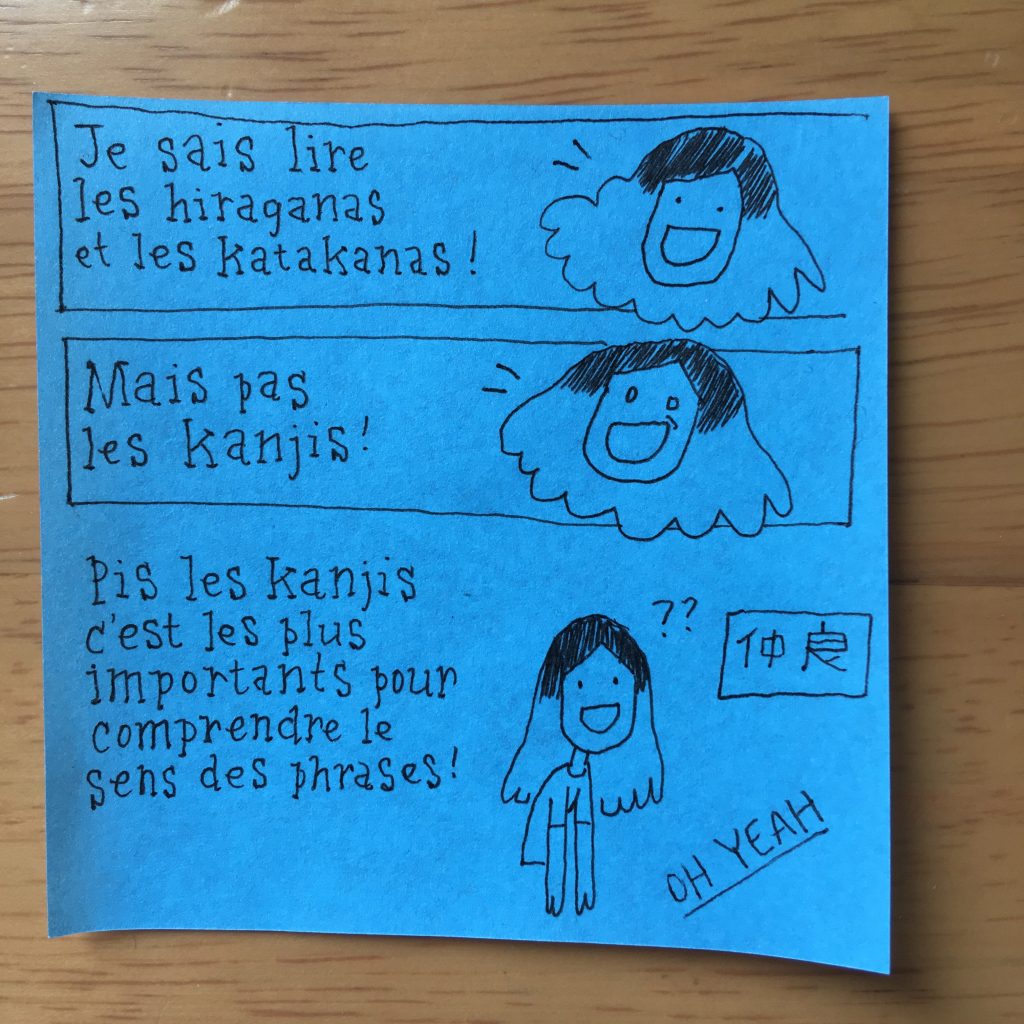 Je sais lire
les hiraganas
et les katakanas !
Mais pas
les kanjis !
Pis les kanjis
c'est les plus
importants pour
comprendre le
sens des phrases !
??
仲良
OH YEAH